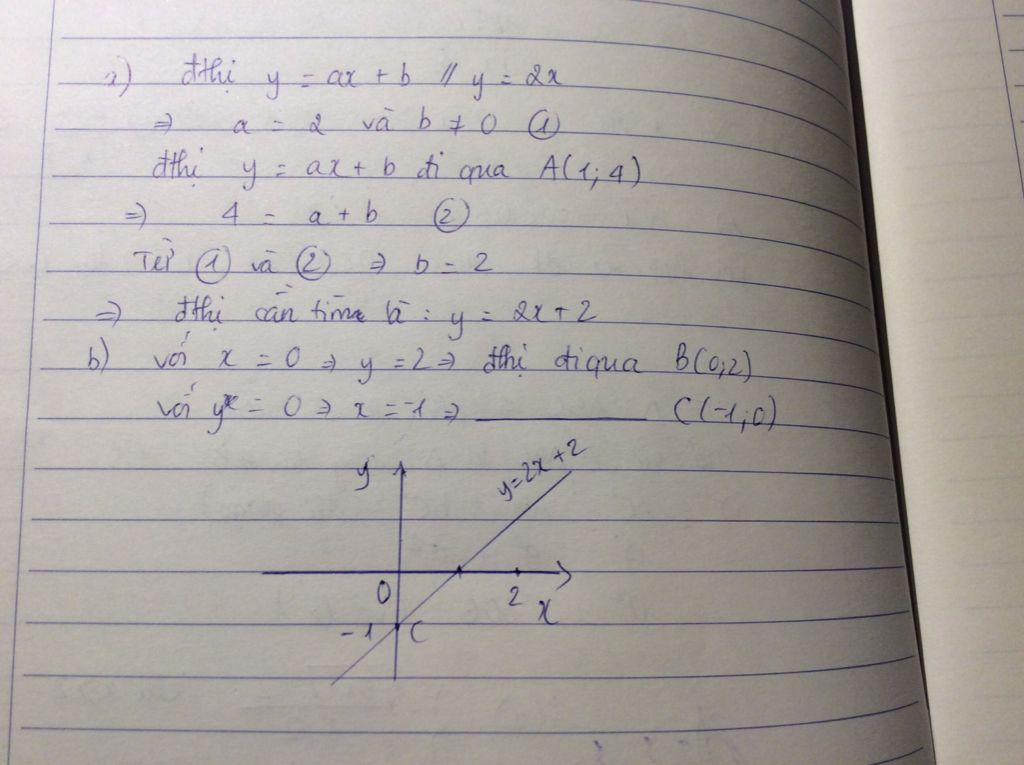 a) đthị y = ax + b // y = 2x
⇒ a = 2 và b ≠ 0 ①
đthị y = ax + b đi qua A(1; 4)
⇒ 4 = a + b ②
Từ ① và ② ⇒ b = 2
⇒ đthị cần tìm là : y = 2x + 2
b) với x = 0 ⇒ y = 2 ⇒ đthị đi qua B(0;2)
với y = 0 ⇒ x = -1 ⇒ ________ C(-1;0)
y
y=2x+2
0
2
x
-1
C